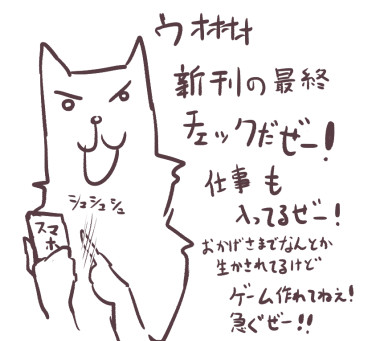 ウオオオオ
新刊の最終
チェックだぜー!
仕事も
入ってるぜー!
おかげさまでなんとか
生かされてるけど
ゲーム作れてねえ!
急ぐぜー!!
シュシュシュ
スマホ